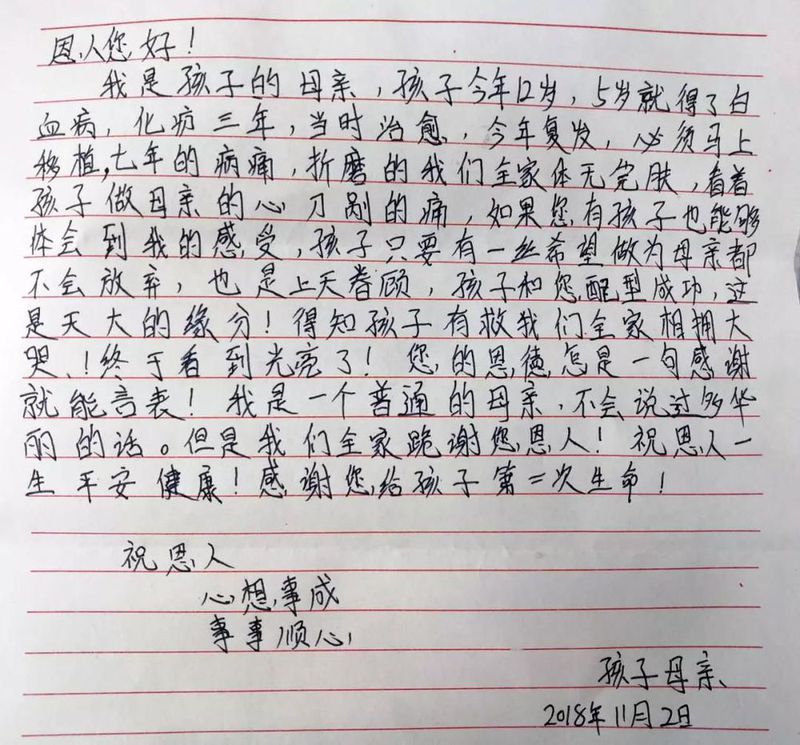 恩人您好！
我是孩子的母亲，孩子今年12岁，5岁就得了白
血病，化疗三年，当时治愈，今年复发，必须马上
移植，七年的病痛，折磨的我们全家体无完肤，看着
孩子做母亲的心刀剐的痛，如果您有孩子也能够
体会到我的感受，孩子只要有一丝希望做为母亲都
不会放弃，也是上天眷顾，孩子和您配型成功，这
是天大的缘分！得知孩子有救我们全家相拥大
哭！终于看到光亮了！您的恩德怎是一句感谢
就能言表！我是一个普通的母亲，不会说过多华
丽的话。但是我们全家跪谢您恩人！祝恩人一
生平安健康！感谢您给孩子第二次生命！
祝恩人
心想事成
事事顺心
孩子母亲
2018年11月2日